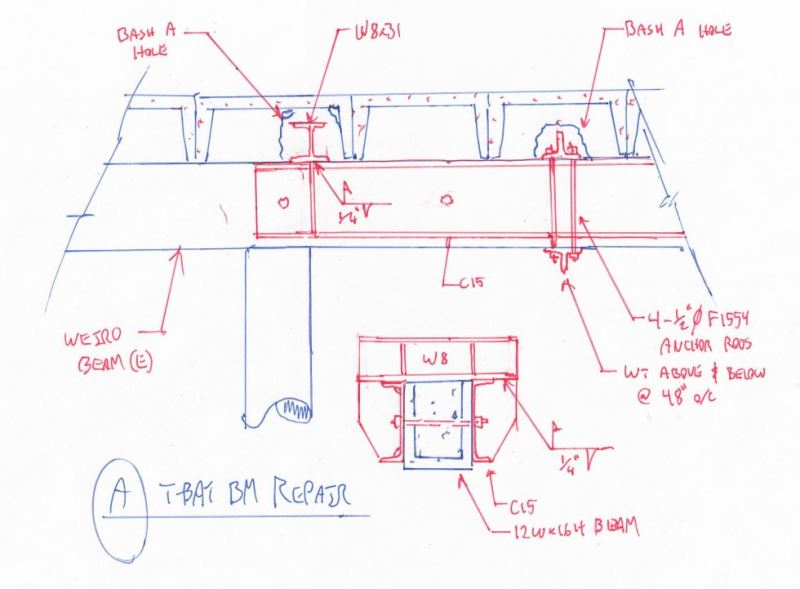 BASH A
HOLE
W8x31
BASH A HOLE
1/4" V
C15
WEIRD
BEAM (E)
4-1/2"Ø F1554
ANCHOR RODS
WT ABOVE & BELOW
@ 48" o/c
W8
1/4" V
C15
12Wx16H BEAM
A
T-BAY BM REPAIR